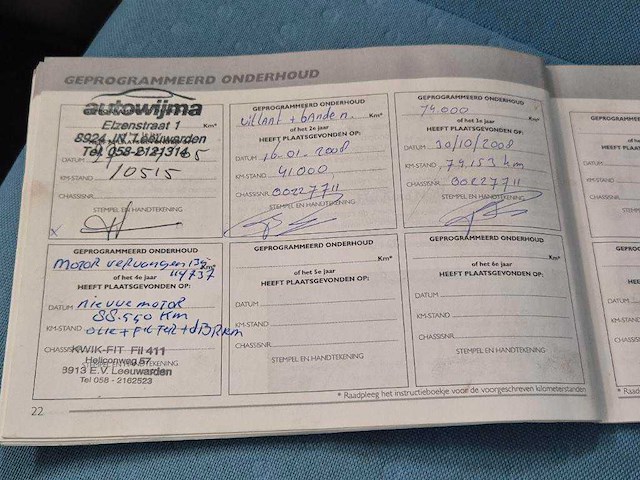 GEPROGRAMMEERD ONDERHOUD
autowijma
Elzenstraat 1
Km*
8924 JN Leeuwarden
Tel. 058-2121314
DATUM
KM-STAND 10515
CHASSISNR.
STEMPEL EN HANDTEKENING
GEPROGRAMMEERD ONDERHOUD:
banden. Km*
of het 2e jaar
HEEFT PLAATSGEVONDEN OP:
DATUM 16.01.2008
KM-STAND 41.000
CHASSISNR. 00227711
STEMPEL EN HANDTEKENING
GEPROGRAMMEERD ONDERHOUD:
74.000 Km*
of het 3e jaar
HEEFT PLAATSGEVONDEN OP:
DATUM 30/10/2008
KM-STAND 74.153 km
CHASSISNR. 00227711
STEMPEL EN HANDTEKENING
GEPROGRAMMEERD ONDERHOUD:
MOTOR vervangen
Km*
of het 4e jaar 114737
HEEFT PLAATSGEVONDEN OP:
DATUM nieuwe motor
88.550 Km
KM-STAND OLIE+FILTER+
CHASSISNR.
KWIK-FIT Fil 411
Heliconweg 57
STEMPEL EN HANDTEKENING
8913 E.V. Leeuwarden
Tel 058 - 2162523
GEPROGRAMMEERD ONDERHOUD:
Km*
of het 5e jaar
HEEFT PLAATSGEVONDEN OP:
DATUM
KM-STAND
CHASSISNR.
STEMPEL EN HANDTEKENING
GEPROGRAMMEERD ONDERHOUD:
Km*
of het 6e jaar
HEEFT PLAATSGEVONDEN OP:
DATUM
KM-STAND
CHASSISNR.
STEMPEL EN HANDTEKENING
* Raadpleeg het instructieboekje voor de voorgeschreven kilometerstanden
22